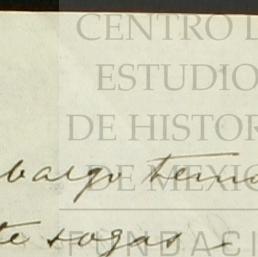 CENTRO D
ESTUDIO
DE HISTOR
DE MEXIC
bargo tenia
te sogas.
FUNDACI